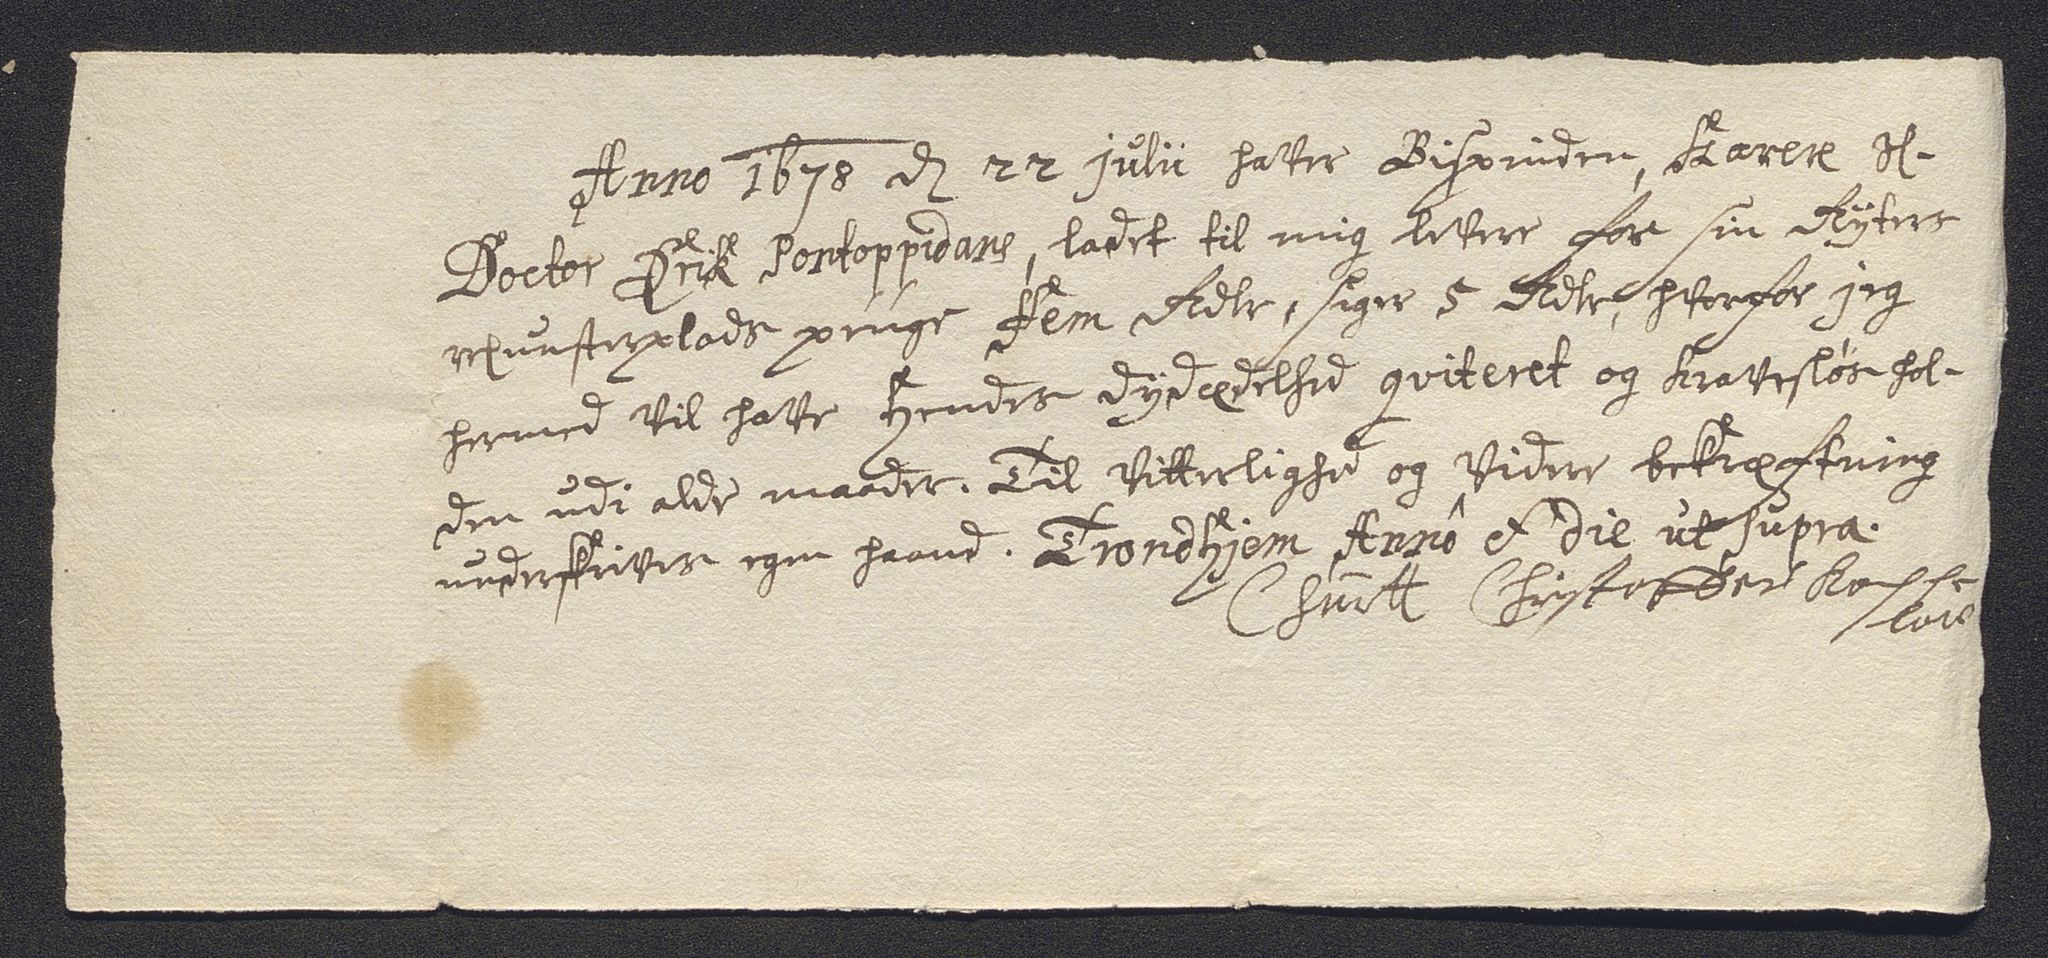 Anno 1678 d 22 julii haver Bispinden, Karen Sl-
Doctor Erik Pontoppidans, ladet til mig levere for sin Ryters
munsterplads penge Fem Rdlr, siger 5 Rdlr, hvorfor jeg
hermed vil have Hendes dydædelhed qviteret og kravesløs hol-
den udi alde maader. Til vitterlighed og videre bekræftning
underskrives egen haand. Trondhjem Annô et die ut supra.
Christoffer